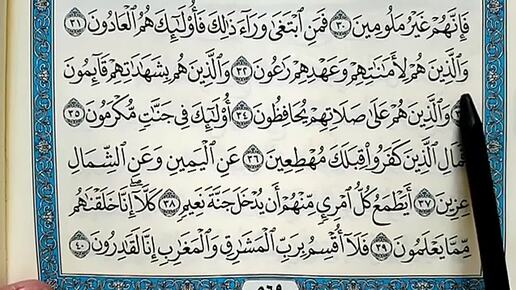 فَإِنَّهُمْ غَيْرُ مَلُومِينَ ٣٠ فَمَنِ ابْتَغَىٰ وَرَاءَ ذَٰلِكَ فَأُولَٰئِكَ هُمُ الْعَادُونَ ٣١
وَالَّذِينَ هُمْ لِأَمَانَاتِهِمْ وَعَهْدِهِمْ رَاعُونَ ٣٢ وَالَّذِينَ هُم بِشَهَادَاتِهِمْ قَائِمُونَ
وَالَّذِينَ هُمْ عَلَىٰ صَلَاتِهِمْ يُحَافِظُونَ ٣٤ أُولَٰئِكَ فِي جَنَّاتٍ مُّكْرَمُونَ ٣٥
فَمَالِ الَّذِينَ كَفَرُوا قِبَلَكَ مُهْطِعِينَ ٣٦ عَنِ الْيَمِينِ وَعَنِ الشِّمَالِ
عِزِينَ ٣٧ أَيَطْمَعُ كُلُّ امْرِئٍ مِّنْهُمْ أَن يُدْخَلَ جَنَّةَ نَعِيمٍ ٣٨ كَلَّا ۖ إِنَّا خَلَقْنَاهُم
مِّمَّا يَعْلَمُونَ ٣٩ فَلَا أُقْسِمُ بِرَبِّ الْمَشَارِقِ وَالْمَغَارِبِ إِنَّا لَقَادِرُونَ ٤٠
٥٦٩